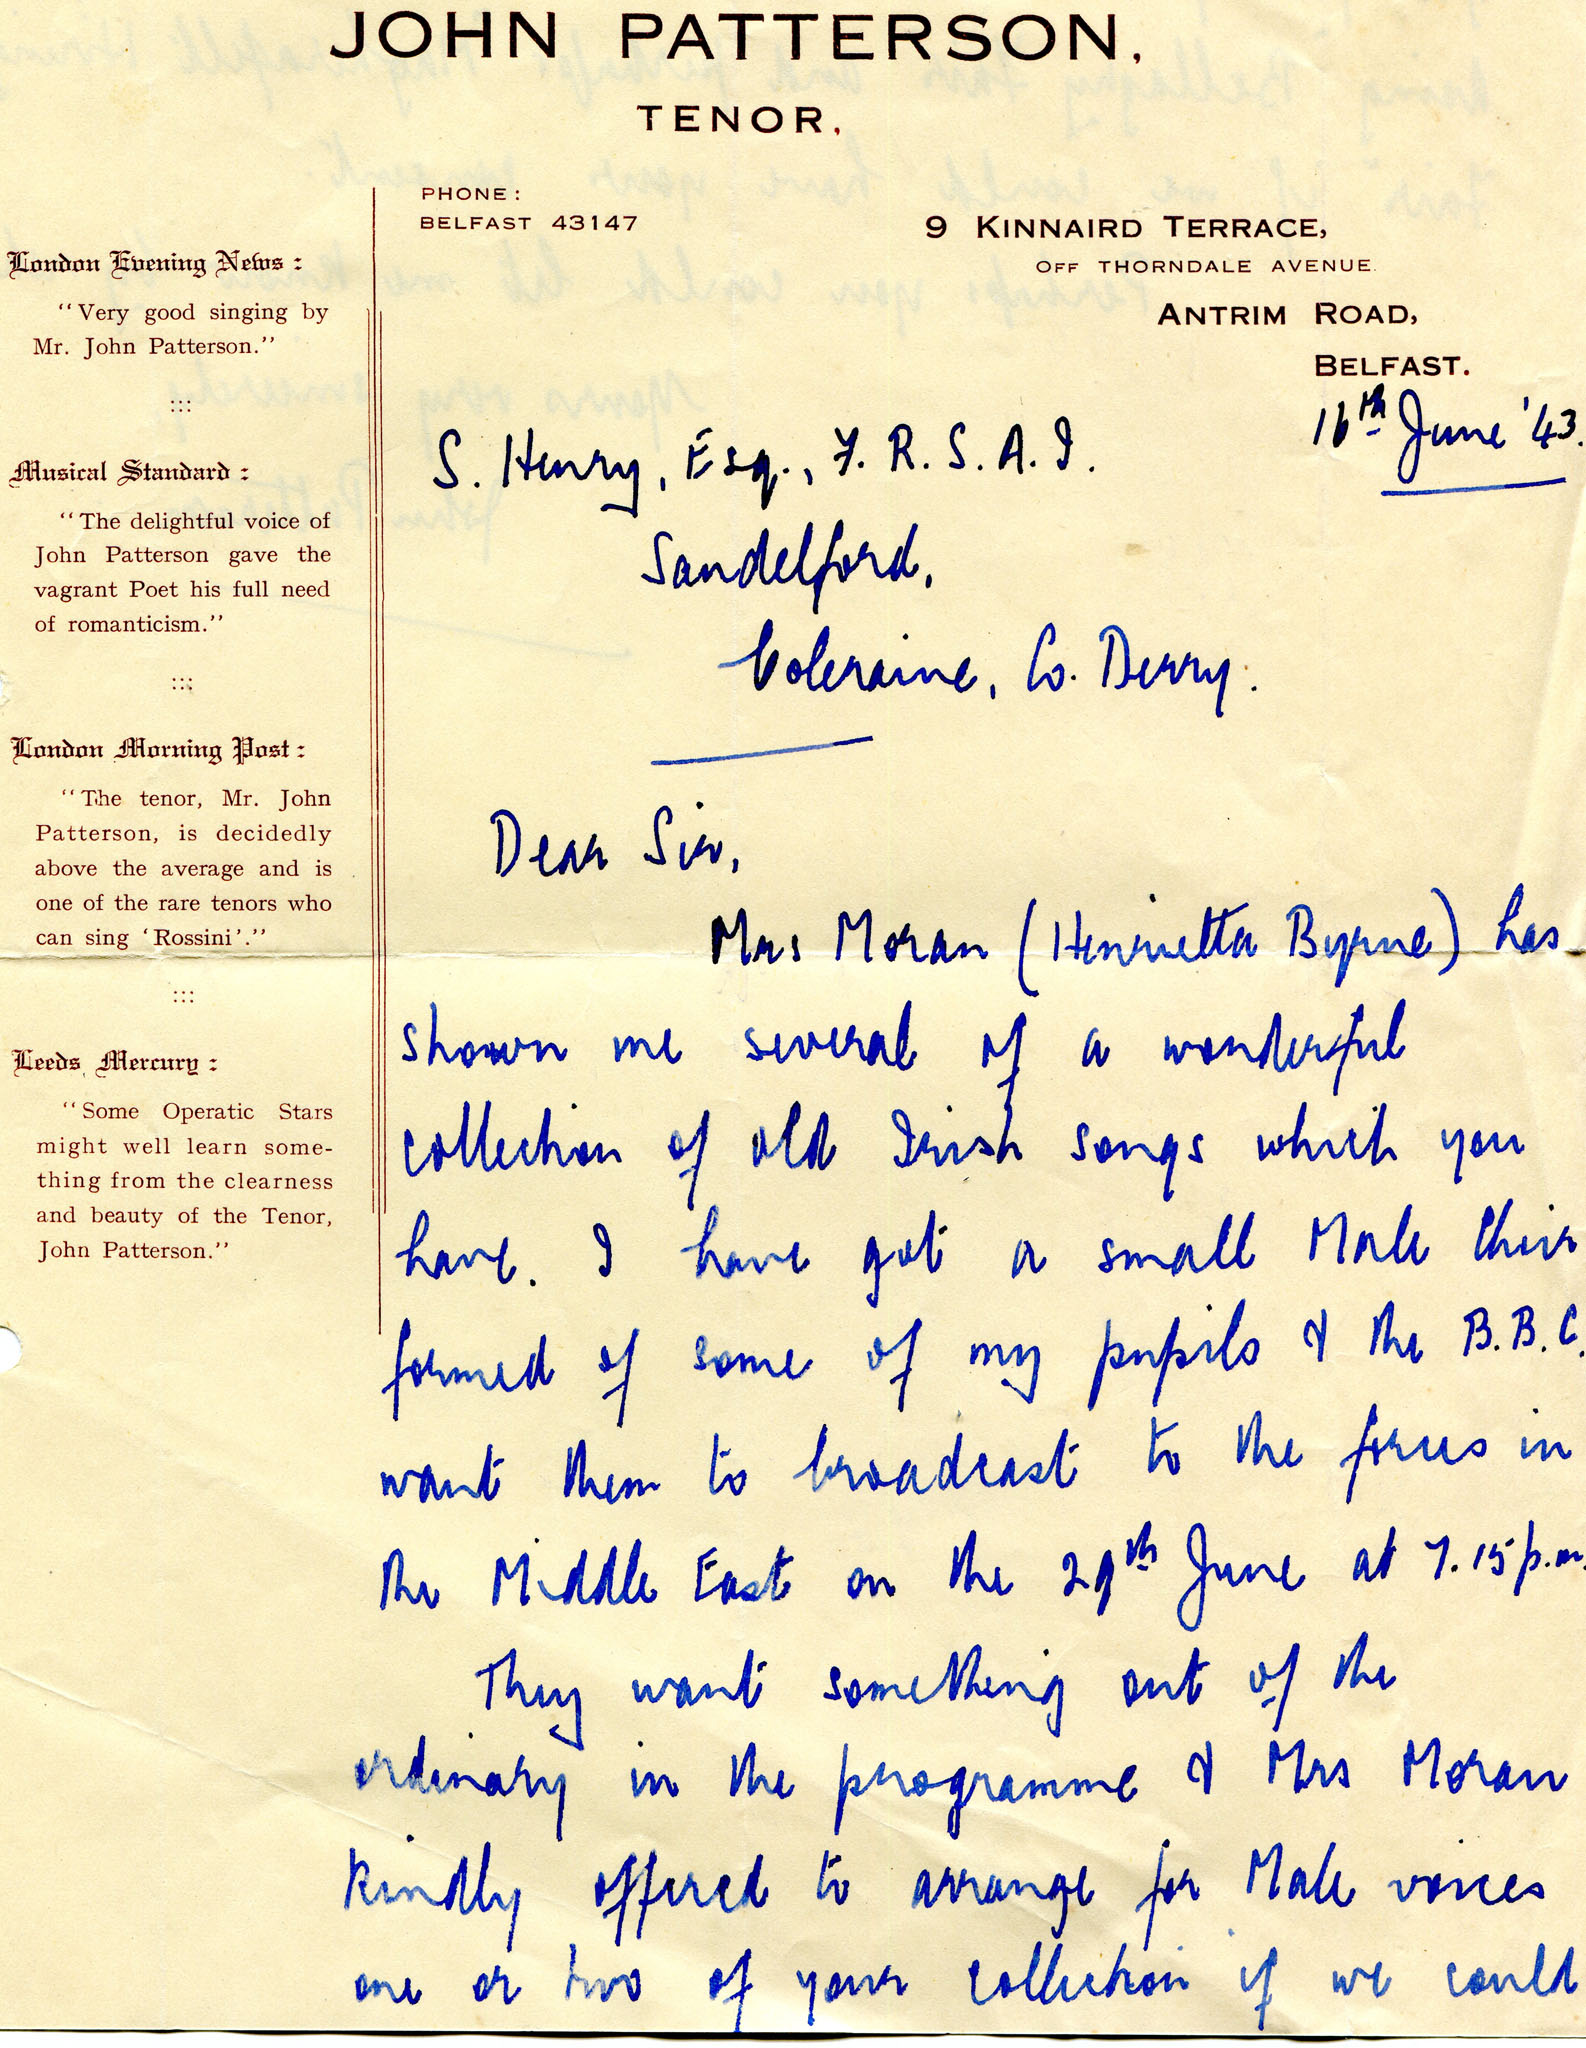 JOHN PATTERSON,
TENOR,
PHONE:
BELFAST 43147
9 KINNAIRD TERRACE,
OFF THORNDALE AVENUE.
ANTRIM ROAD,
BELFAST.
16th June '43.
London Evening News:
"Very good singing by
Mr. John Patterson."
:::
Musical Standard:
"The delightful voice of
John Patterson gave the
vagrant Poet his full need
of romanticism."
:::
London Morning Post:
"The tenor, Mr. John
Patterson, is decidedly
above the average and is
one of the rare tenors who
can sing 'Rossini'."
:::
Leeds Mercury:
"Some Operatic Stars
might well learn some-
thing from the clearness
and beauty of the Tenor,
John Patterson."
S. Henry, Esq., F. R. S. A. I.
Sandelford,
Coleraine, Co. Derry.
Dear Sir,
Mrs Moran (Henrietta Byrne) has
shown me several of a wonderful
collection of old Irish songs which you
have. I have got a small Male Choir
formed of some of my pupils & the B.B.C.
want them to broadcast to the forces in
the Middle East on the 29th June at 7.15 p.m.
They want something out of the
ordinary in the programme & Mrs Moran
kindly offered to arrange for Male voices
one or two of your collection if we could